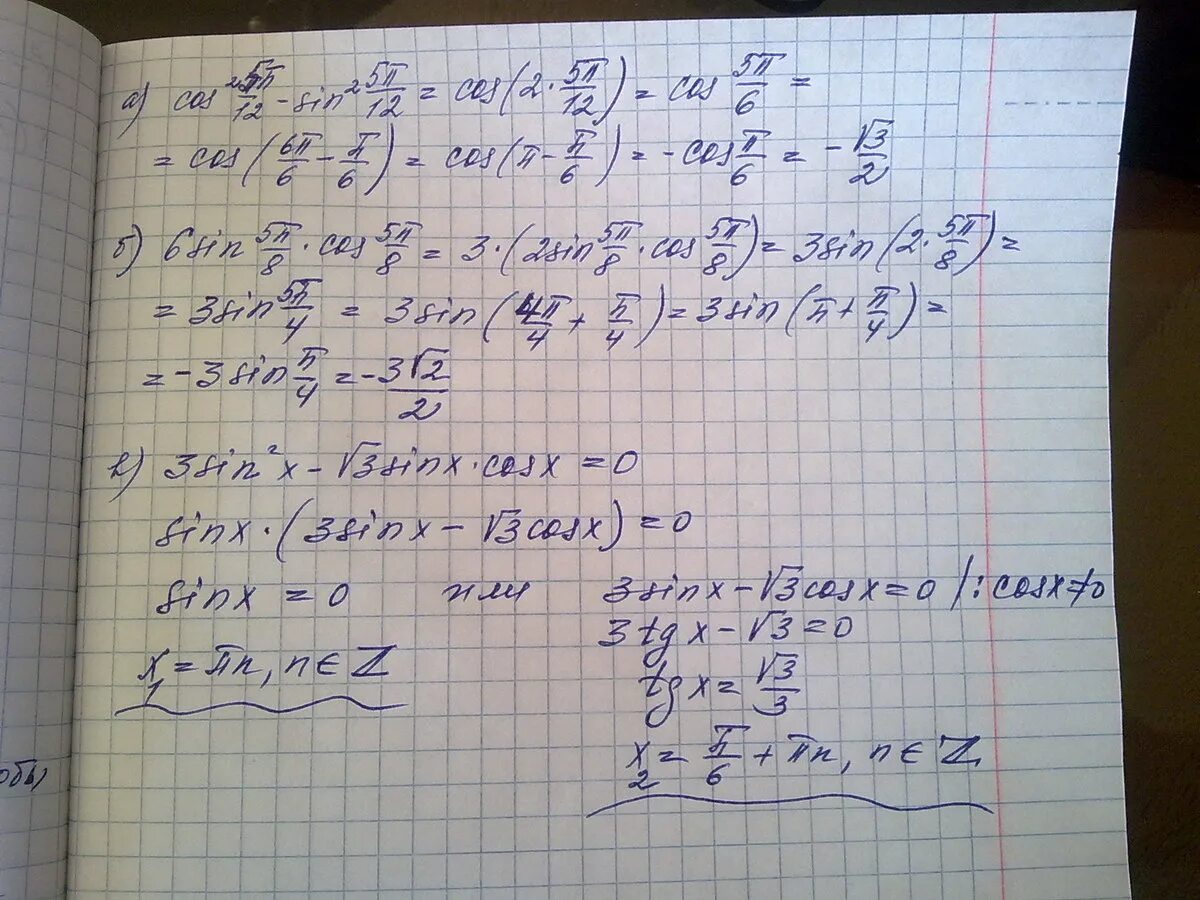 а) cos² 5π/12 - sin² 5π/12 = cos(2· 5π/12) = cos 5π/6 =
= cos(6π/6 - π/6) = cos(π - π/6) = -cos π/6 = - √3/2
б) 6sin 5π/8 · cos 5π/8 = 3·(2sin 5π/8 · cos 5π/8) = 3sin(2· 5π/8) =
= 3sin 5π/4 = 3sin(4π/4 + π/4) = 3sin(π + π/4) =
= -3sin π/4 = - 3√2/2
в) 3sin²x - √3sinx·cosx = 0
sinx·(3sinx - √3cosx) = 0
sinx = 0 или 3sinx - √3cosx = 0 /: cosx≠0
3tgx - √3 = 0
x₁ = πn, n∈Z
tgx = √3/3
x₂ = π/6 + πn, n∈Z
обы)